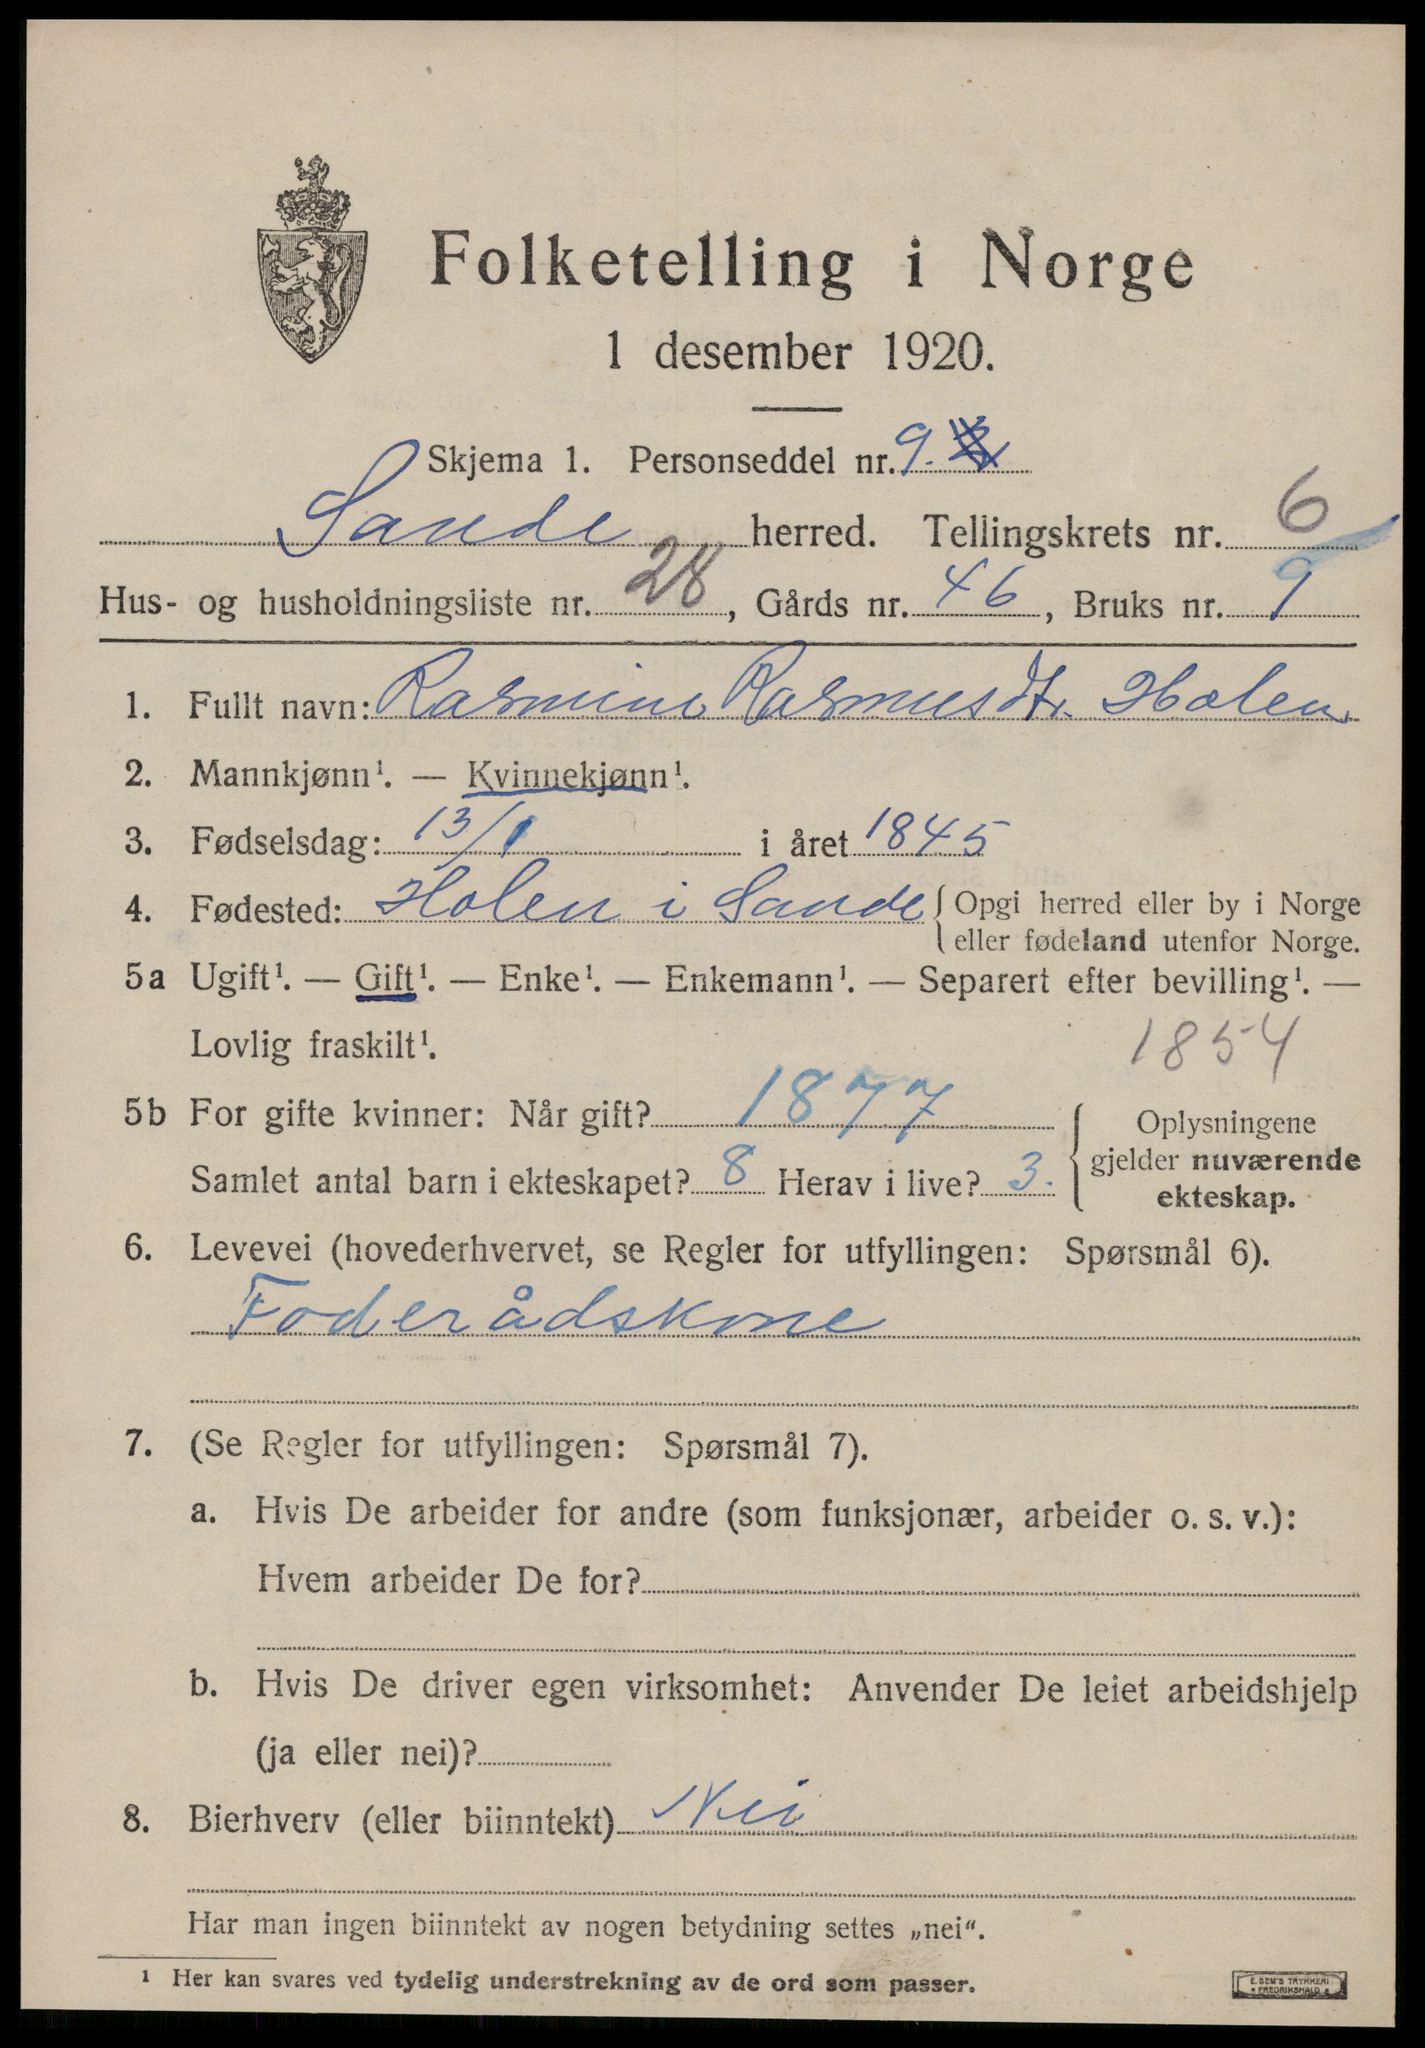 Folketelling i Norge
1 desember 1920.
Skjema 1. Personseddel nr. 9.
Sande herred. Tellingskrets nr. 6
Hus- og husholdningsliste nr. 28, Gårds nr. 46, Bruks nr. 9
1. Fullt navn: Rasmine Rasmusdtr. Holen
2. Mannkjønn¹. — Kvinnekjønn¹.
3. Fødselsdag: 13/1 i året 1845
4. Fødested: Holen i Sande { Opgi herred eller by i Norge
eller fødeland utenfor Norge.
5a Ugift¹. — Gift¹. — Enke¹. — Enkemann¹. — Separert efter bevilling¹. —
Lovlig fraskilt¹.
1854
5b For gifte kvinner: Når gift? 1877
Samlet antal barn i ekteskapet? 8 Herav i live? 3.
{ Oplysningene
gjelder nuværende
ekteskap.
6. Levevei (hovederhvervet, se Regler for utfyllingen: Spørsmål 6).
Foderådskone
7. (Se Regler for utfyllingen: Spørsmål 7).
a. Hvis De arbeider for andre (som funksjonær, arbeider o. s. v.):
Hvem arbeider De for?
b. Hvis De driver egen virksomhet: Anvender De leiet arbeidshjelp
(ja eller nei)?
8. Bierhverv (eller biinntekt) Nei
Har man ingen biinntekt av nogen betydning settes „nei“.
¹ Her kan svares ved tydelig understrekning av de ord som passer.
E. SEM'S TRYKKERI
FREDRIKSHALD